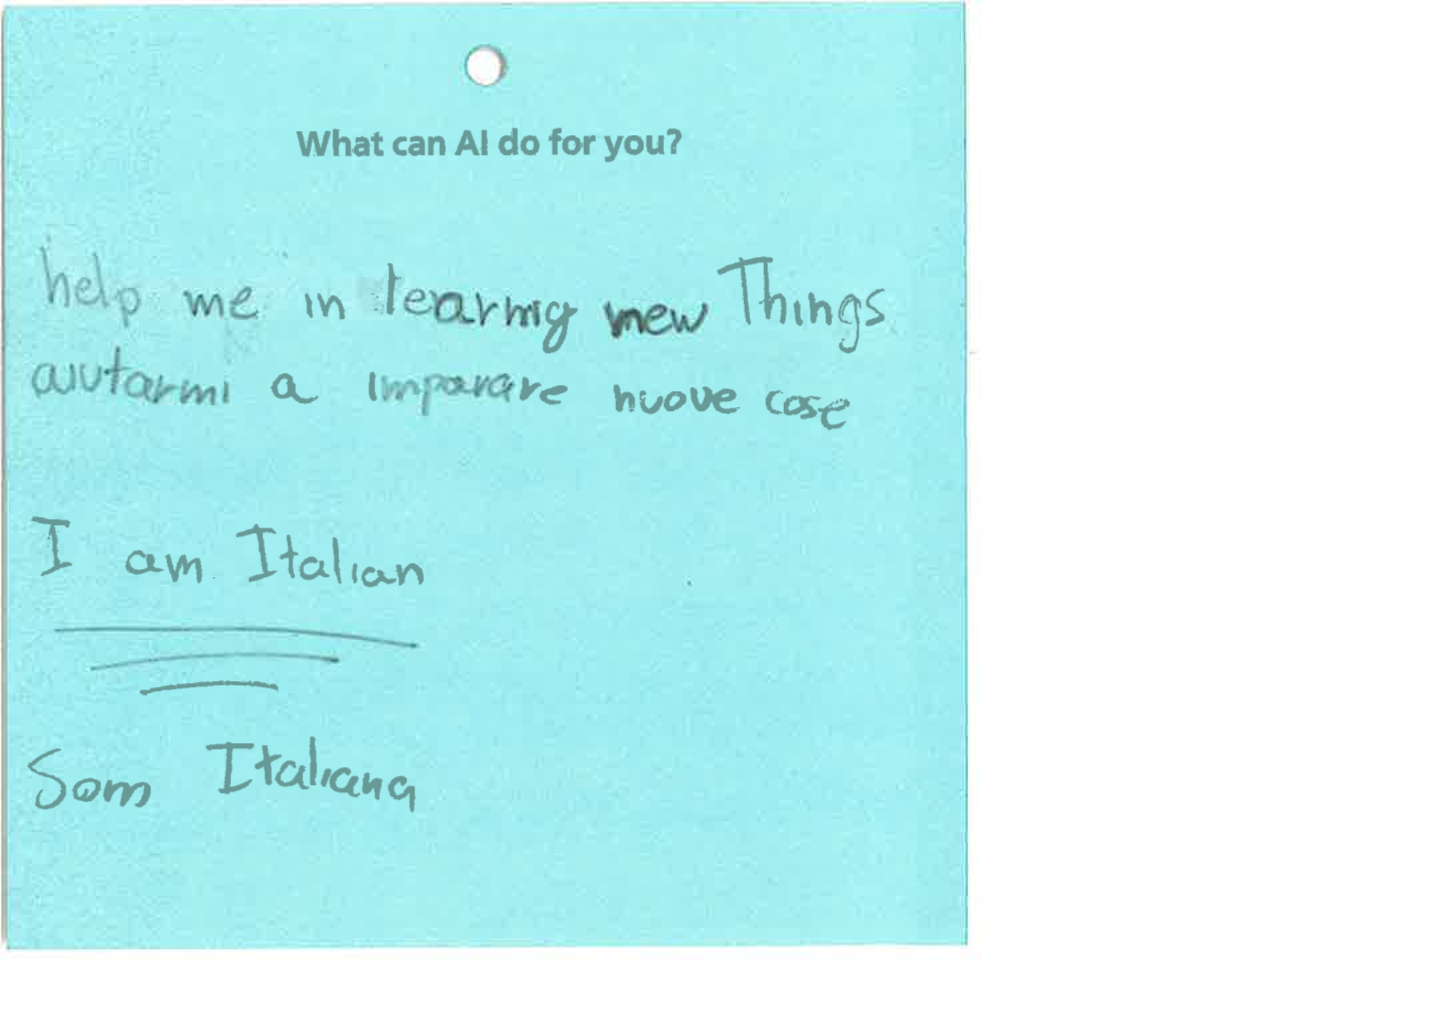 What can AI do for you?
help me in learnig new Things
aiutarmi a imparare nuove cose
I am Italian
Som Italiana